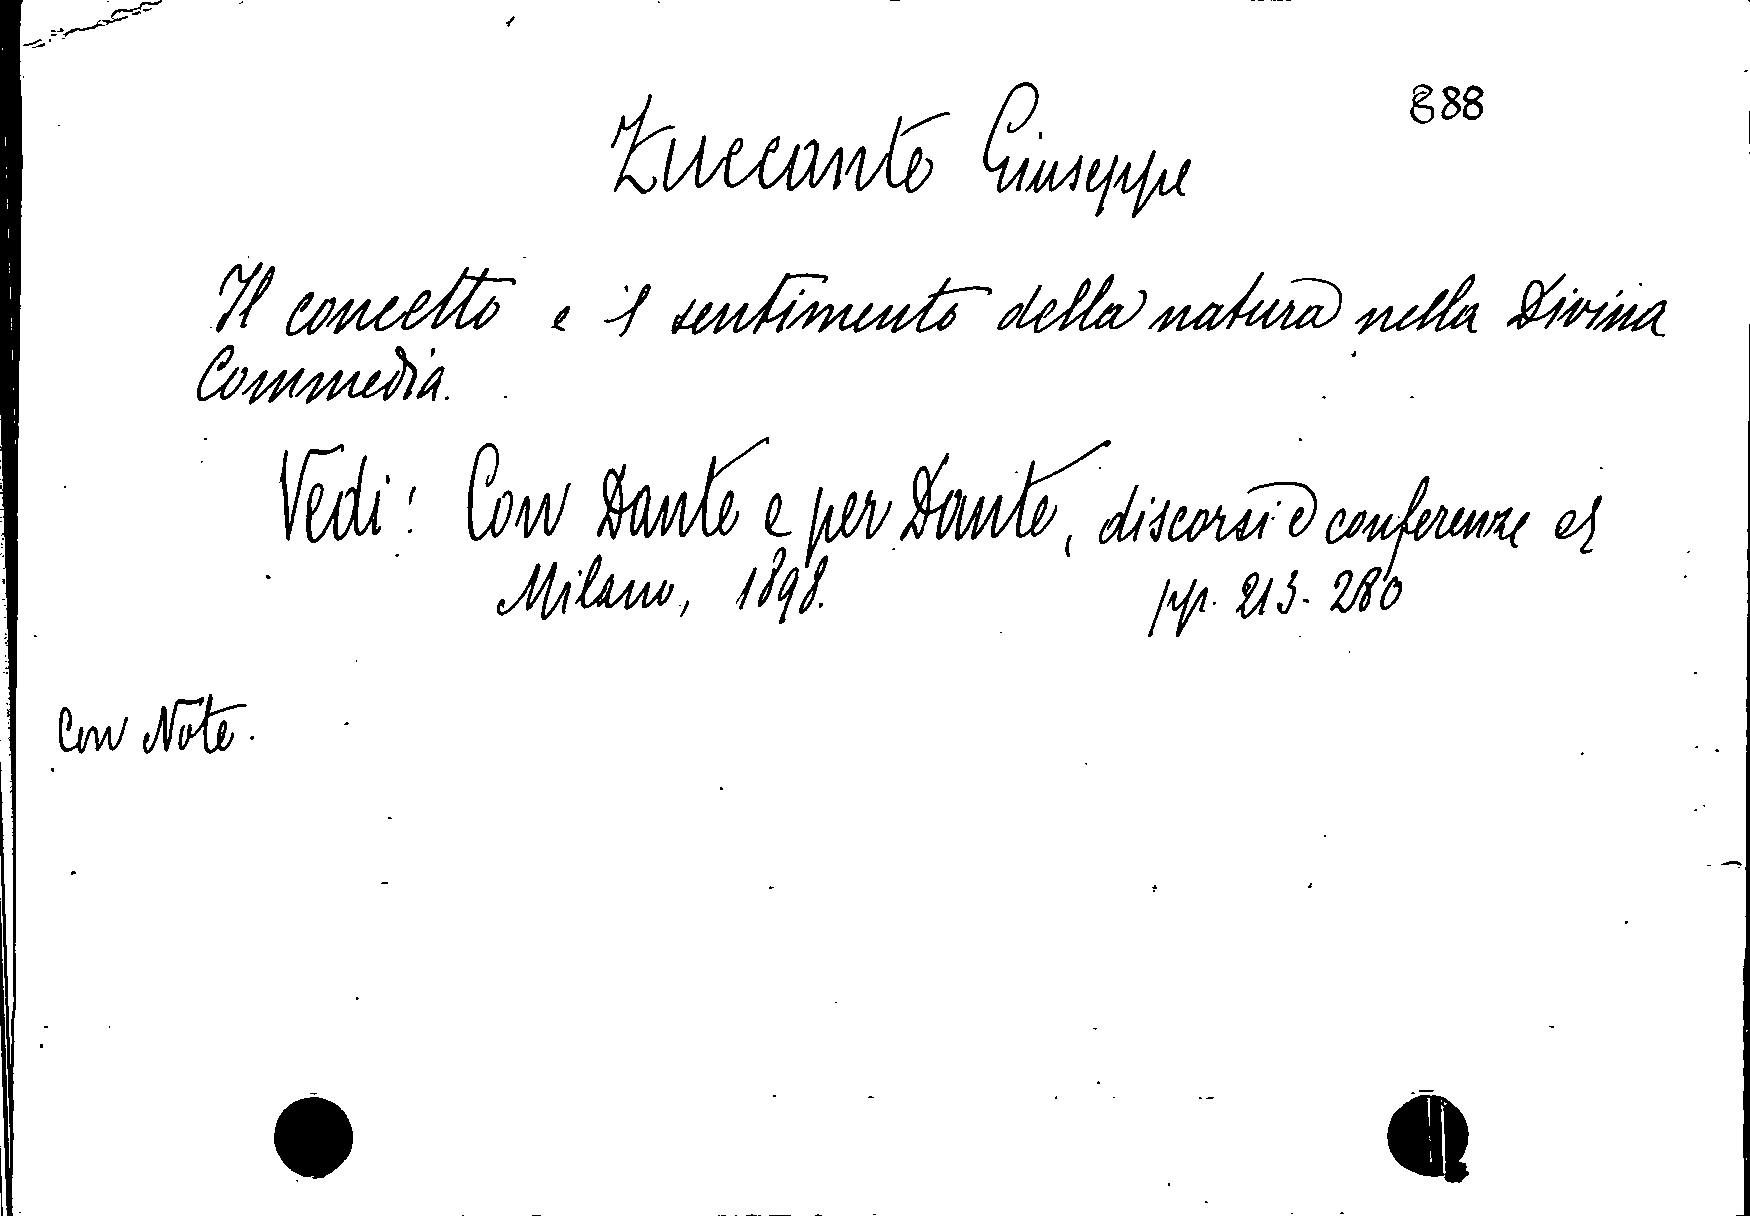 888
Zuccante Giuseppe
Il concetto e il sentimento della natura nella Divina
Commedia.
Vedi: Con Dante e per Dante, discorsi e conferenze
Milano, 1898. pp. 213-280
Con Note.